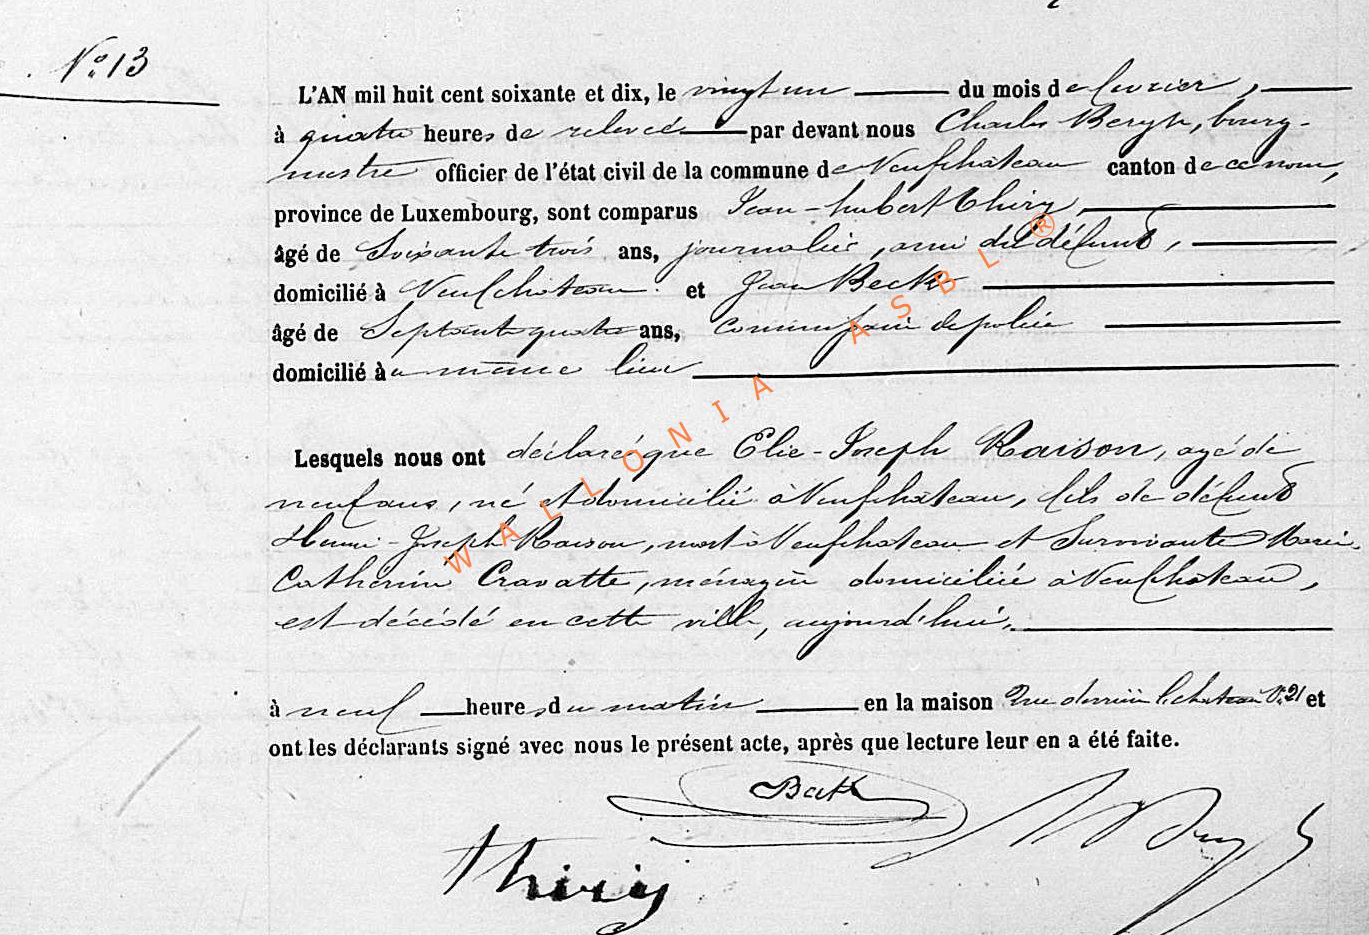 N° 13
L'AN mil huit cent soixante et dix, le vingt un du mois de février,
à quatre heures de relevée par devant nous Charles Bergh, bourg-
mestre officier de l'état civil de la commune de Neufchateau canton de ce nom,
province de Luxembourg, sont comparus Jean-hubert Thiry,
âgé de Soixante trois ans, journalier, ami du défunt,
domicilié à Neufchateau et Jean Beck
âgé de Septante quatre ans, commissaire de police
domicilié au même lieu
Lesquels nous ont déclaré que Elie-Joseph Raison, agé de
neuf ans, né et domicilié à Neufchateau, fils de défunt
Henri-Joseph Raison, mort à Neufchateau et Survivante Marie
Catherine Cravatte, ménagère domiciliée à Neufchateau,
est décédé en cette ville, aujourd'hui,
à neuf heures du matin en la maison Rue derrière le chateau N° 21 et
ont les déclarants signé avec nous le présent acte, après que lecture leur en a été faite.
Beck
Thiry
WALLONIA ASBL ®